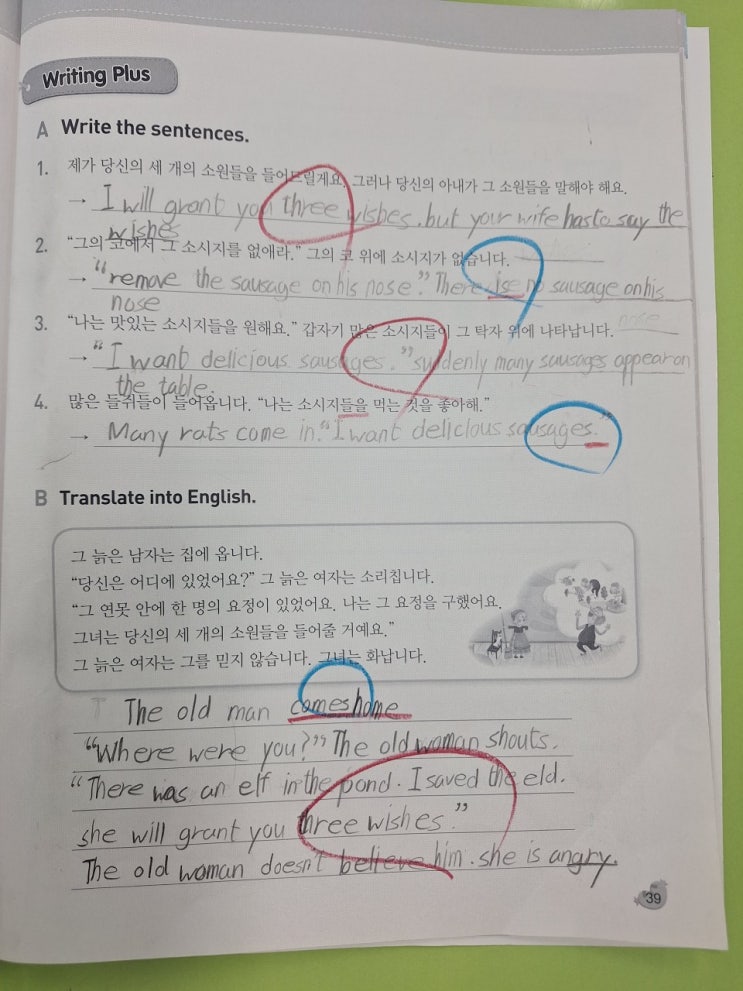 Writing Plus
A Write the sentences.
1. 제가 당신의 세 개의 소원들을 들어드릴게요. 그러나 당신의 아내가 그 소원들을 말해야 해요.
→ I will grant you three wishes. but your wife has to say the
wishes
2. "그의 코에서 그 소시지를 없애라." 그의 코 위에 소시지가 없습니다.
→ "remove the sausage on his nose." There is no sausage on his
nose
3. "나는 맛있는 소시지들을 원해요." 갑자기 많은 소시지들이 그 탁자 위에 나타납니다.
→ "I want delicious sausages." suddenly many sausages appear on
the table.
4. 많은 들쥐들이 들어옵니다. "나는 소시지들을 먹는 것을 좋아해."
→ Many rats come in. "I want delicious sausages."
B Translate into English.
그 늙은 남자는 집에 옵니다.
"당신은 어디에 있었어요?" 그 늙은 여자는 소리칩니다.
"그 연못 안에 한 명의 요정이 있었어요. 나는 그 요정을 구했어요.
그녀는 당신의 세 개의 소원들을 들어줄 거예요."
그 늙은 여자는 그를 믿지 않습니다. 그녀는 화납니다.
The old man comes home
"Where were you?" The old woman shouts.
"There was an elf in the pond. I saved the eld.
she will grant you three wishes."
The old woman doesn't believe him. she is angry.
39